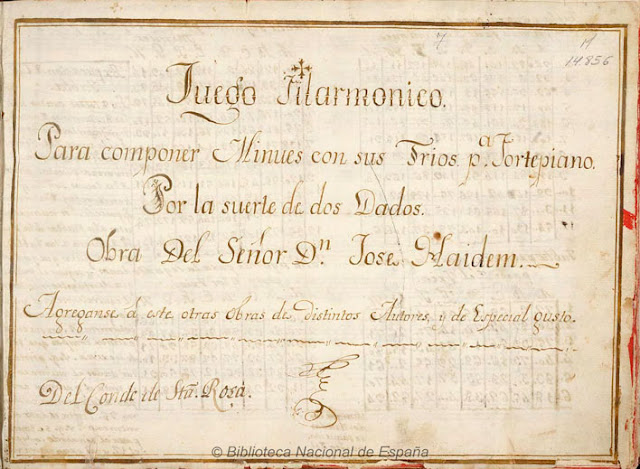 7
M
14856
Juego Filarmonico.
Para componer Minues con sus Trios p.ª Fortepiano.
Por la suerte de dos Dados.
Obra Del Señor D.n Jose Haidem.
Agreganse á este otras obras de distintos Autores, y de Especial gusto.
Del Conde de Sta. Rosa.
© Biblioteca Nacional de España